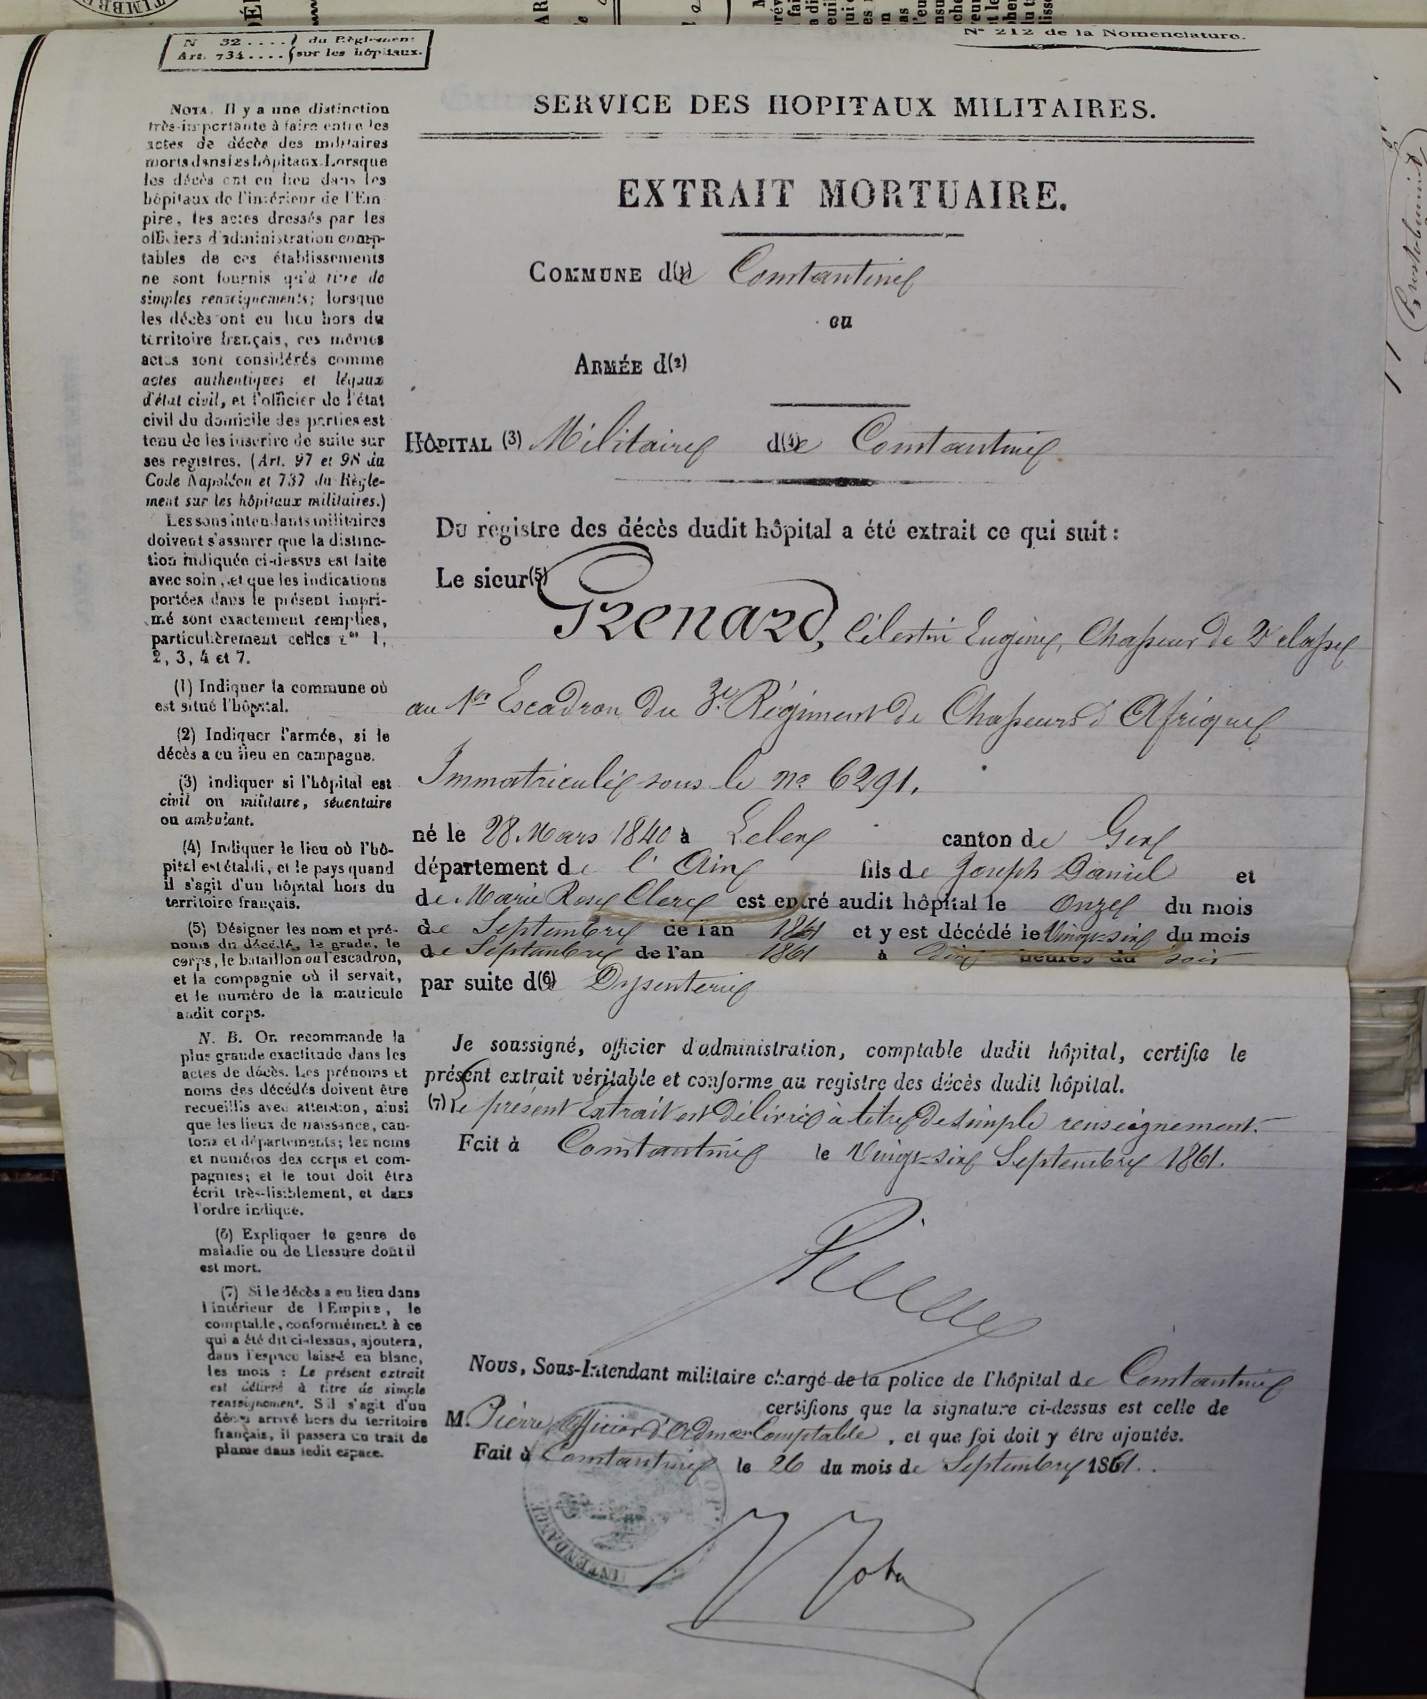 N 32 .... du Règlement
Art. 734 .... sur les hôpitaux.
N° 212 de la Nomenclature.
SERVICE DES HOPITAUX MILITAIRES.
EXTRAIT MORTUAIRE.
COMMUNE d(1)e Constantine
ou
ARMÉE d(2)
HÔPITAL (3) Militaire d(4)e Constantine
Du registre des décès dudit hôpital a été extrait ce qui suit :
Le sieur(5) Grenard, Célestin Eugène, Chasseur de 2e classe
au 1er Escadron du 3e Régiment de Chasseurs d'Afrique
Immatriculé sous le no 6291.
né le 28 Mars 1840 à Lelex canton de Gex
département de l'Ain fils de Joseph Daniel et
de Marie Rose Clerc est entré audit hôpital le Onze du mois
de Septembre de l'an 1861 et y est décédé le Vingt-six du mois
de Septembre de l'an 1861 à heures du soir
par suite d(6)e Dysenterie
Je soussigné, officier d'administration, comptable dudit hôpital, certifie le
présent extrait véritable et conforme au registre des décès dudit hôpital.
(7) Le présent Extrait est délivré à titre de simple renseignement.
Fait à Constantine le Vingt-six Septembre 1861.
Nous, Sous-Intendant militaire chargé de la police de l'hôpital de Constantine
certifions que la signature ci-dessus est celle de
M. Pierre, Officier d'Admon Comptable, et que foi doit y être ajoutée.
Fait à Constantine le 26 du mois de Septembre 1861.
INTENDANCE
NOTA. Il y a une distinction
très-importante à faire entre les
actes de décès des militaires
morts dans les hôpitaux. Lorsque
les décès ont eu lieu dans les
hôpitaux de l'intérieur de l'Em-
pire, les actes dressés par les
officiers d'administration comp-
tables de ces établissements
ne sont fournis qu'à titre de
simples renseignements; lorsque
les décès ont eu lieu hors du
territoire français, ces mêmes
actes sont considérés comme
actes authentiques et légaux
d'état civil, et l'officier de l'état
civil du domicile des parties est
tenu de les inscrire de suite sur
ses registres. (Art. 97 et 98 du
Code Napoléon et 737 du Règle-
ment sur les hôpitaux militaires.)
Les sous intendants militaires
doivent s'assurer que la distinc-
tion indiquée ci-dessus est faite
avec soin, et que les indications
portées dans le présent impri-
mé sont exactement remplies,
particulièrement celles nos 1,
2, 3, 4 et 7.
(1) Indiquer la commune où
est situé l'hôpital.
(2) Indiquer l'armée, si le
décès a eu lieu en campagne.
(3) Indiquer si l'hôpital est
civil ou militaire, sédentaire
ou ambulant.
(4) Indiquer le lieu où l'hô-
pital est établi, et le pays quand
il s'agit d'un hôpital hors du
territoire français.
(5) Désigner les nom et pré-
noms du décédé, le grade, le
corps, le bataillon ou l'escadron,
et la compagnie où il servait,
et le numéro de la matricule
audit corps.
N. B. On recommande la
plus grande exactitude dans les
actes de décès. Les prénoms et
noms des décédés doivent être
recueillis avec attention, ainsi
que les lieux de naissance, can-
tons et départements; les noms
et numéros des corps et com-
pagnies; et le tout doit être
écrit très-lisiblement, et dans
l'ordre indiqué.
(6) Expliquer le genre de
maladie ou de blessure dont il
est mort.
(7) Si le décès a eu lieu dans
l'intérieur de l'Empire, le
comptable, conformément à ce
qui a été dit ci-dessus, ajoutera,
dans l'espace laissé en blanc,
les mots : Le présent extrait
est délivré à titre de simple
renseignement. S'il s'agit d'un
décès arrivé hors du territoire
français, il passera un trait de
plume dans ledit espace.